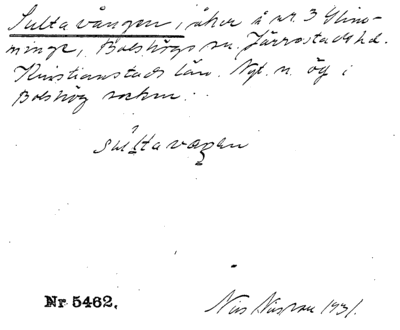 Sultavången, åker å nr. 3 Glim-
minge, Bolshögs sn. Järrestads hd.
Kristianstads län. Ngt. n. ög i
Bolshög socken.
sultavaŋen
Nr 5462.
Nils 1931.